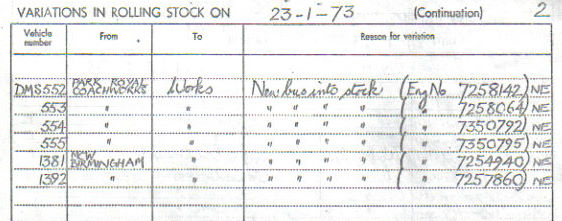 VARIATIONS IN ROLLING STOCK ON 23-1-73 (Continuation) 2
Vehicle number From To Reason for variation
DMS552 PARK ROYAL COACHWORKS Works New bus into stock (Eng No. 7258142) NE
553 " " " " " " ( " 7258064) NE
554 " " " " " " ( " 7350792) NE
555 " " " " " " ( " 7350795) NE
1381 MCW BIRMINGHAM " " " " " ( " 7254940) NE
1392 " " " " " " ( " 7257860) NE